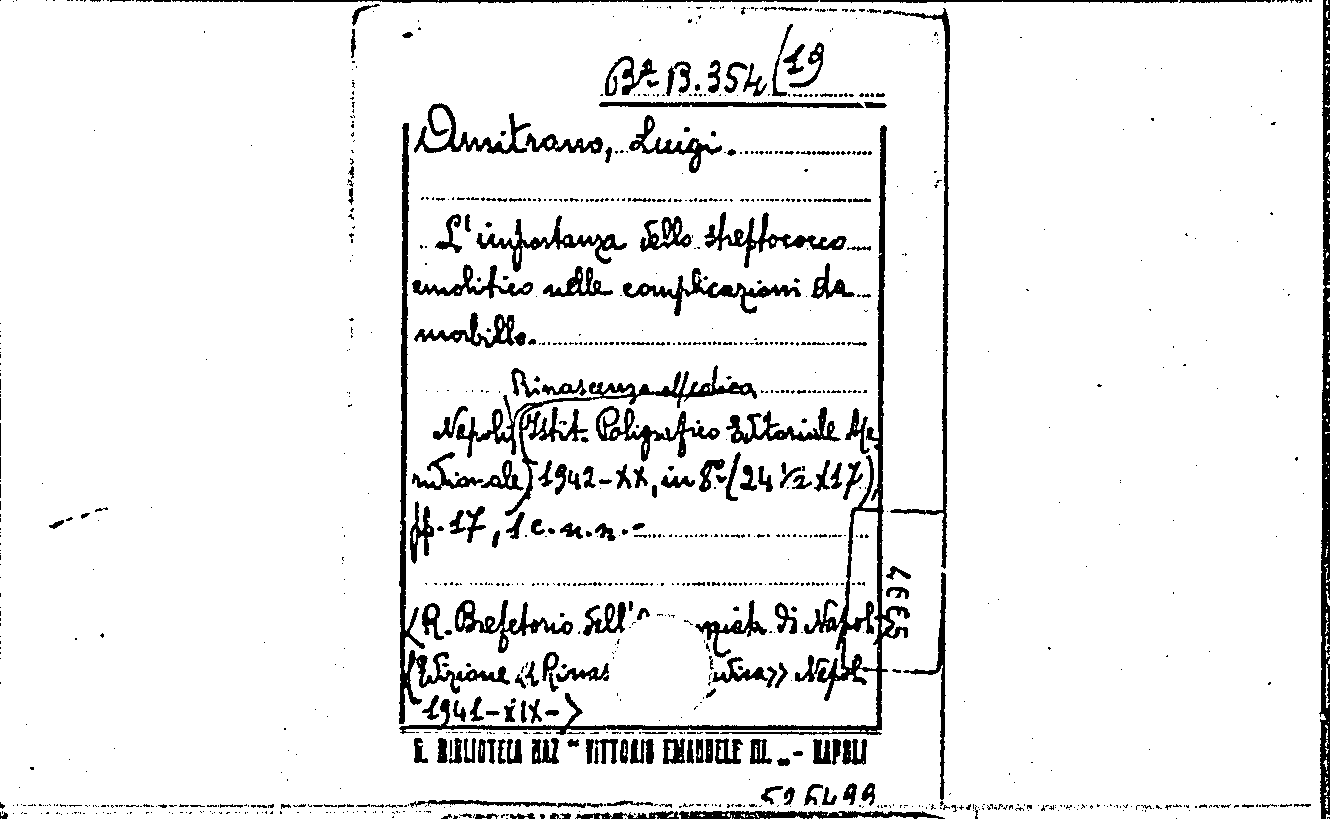 Bª B. 354 (19
Amitrano, Luigi.
L'importanza dello streptococco
emolitico nelle complicazioni da
morbillo.
Rinascenza Medica
Napoli (Istit. Poligrafico Editoriale Me
ridionale) 1942-XX, in 8º (24 ½ x 17),
pp. 17, 1 c. n. n. -
(R. Brefetorio dell' di Napoli)
(Edizione << Rinas dica>> Napoli
1941-XIX->
R. BIBLIOTECA NAZ "VITTORIO EMANUELE III. „ - NAPOLI
4665